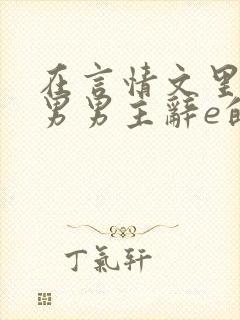 在言情文里
男男主辞e的
丁氣轩